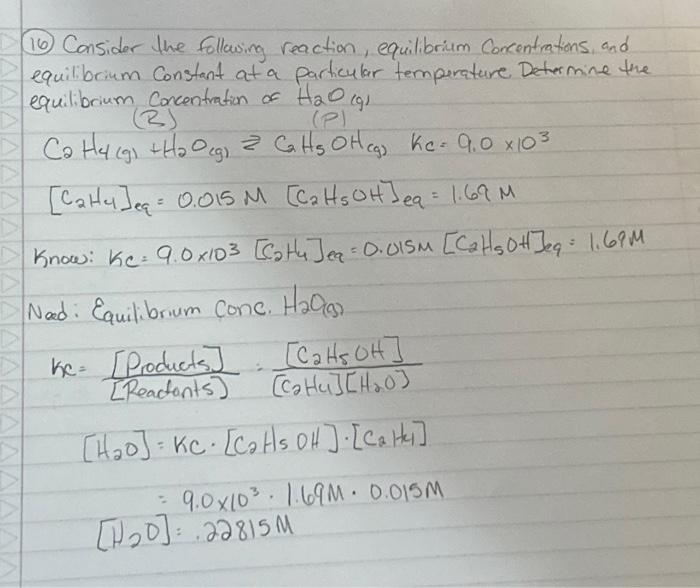 16 Consider the following reaction, equilibrium Concentrations, and
equilibrium Constant at a particular temperature. Determine the
equilibrium Concentration of H2O (g)
(R) (P)
C2H4(g) + H2O(g) ⇌ C2H5OH(g) Kc = 9.0 × 10³
[C2H4]eq = 0.015 M [C2H5OH]eq = 1.69 M
Know: Kc = 9.0×10³ [C2H4]eq = 0.015M [C2H5OH]eq = 1.69M
Need: Equilibrium Conc. H2O(g)
Kc = [Products] / [Reactants] = [C2H5OH] / [C2H4][H2O]
[H2O] = Kc · [C2H5OH] · [C2H4]
= 9.0×10³ · 1.69M · 0.015M
[H2O] = .22815M